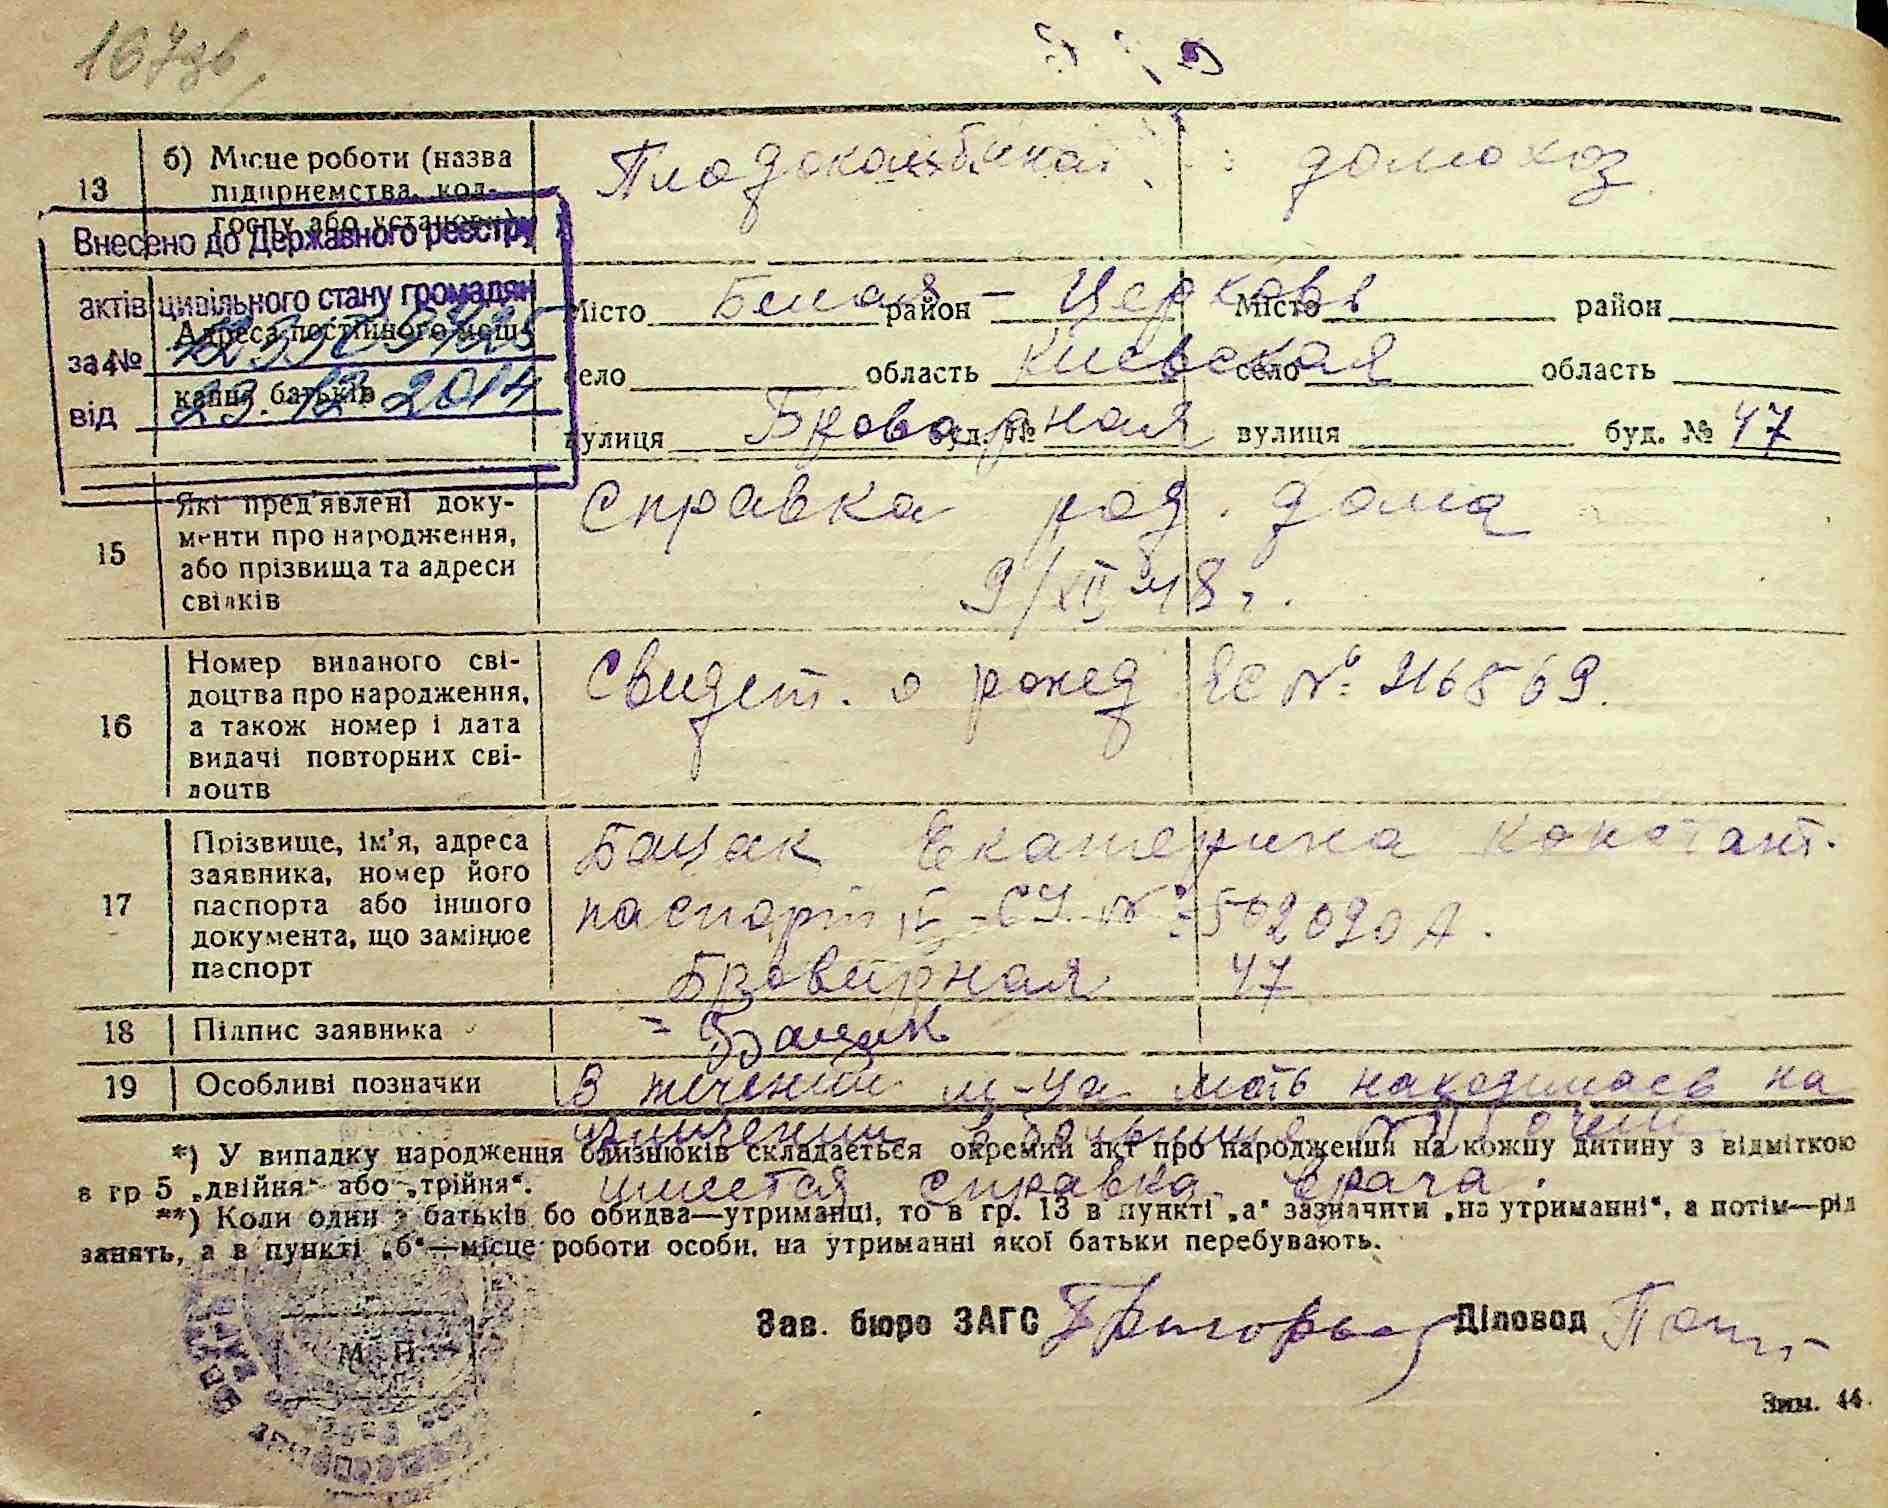 167зв,
13 б) Місце роботи (назва підприємства, кол-госпу або установи) Плодокомбинат домохоз
Внесено до Державного реєстру
актів цивільного стану громадян
за №
від 23.12.2014
Адреса постійного меш-
кання батьків
Місто Белая - Церковь район Місто район
село область Киевская село область
вулиця Броварная буд. № вулиця буд. № 47
15 Які пред'явлені доку-
менти про народження,
або прізвища та адреси
свідків
Справка род. дома
9/XII 48 г.
16 Номер виданого сві-
доцтва про народження,
а також номер і дата
видачі повторних сві-
доцтв
Свидет. о рожд ЯС № 216569.
17 Прізвище, ім'я, адреса
заявника, номер його
паспорта або іншого
документа, що замінює
паспорт
Бацак Екатерина Констант.
паспорт № 502090 А.
Броварная 47
18 Підпис заявника Бацак
19 Особливі позначки В течении м-ца мать находилась на
излечении в больнице
имеется справка врача.
*) У випадку народження близнюків складається окремий акт про народження на кожну дитину з відміткою
в гр 5 „двійня“ або „трійня“.
**) Коли один з батьків бо обидва—утриманці, то в гр. 13 в пункті „а“ зазначити „на утриманні“, а потім—рід
занять, а в пункті „б“—місце роботи особи, на утриманні якої батьки перебувають.
Зав. бюро ЗАГС Діловод
М. П.
Зим. 44.